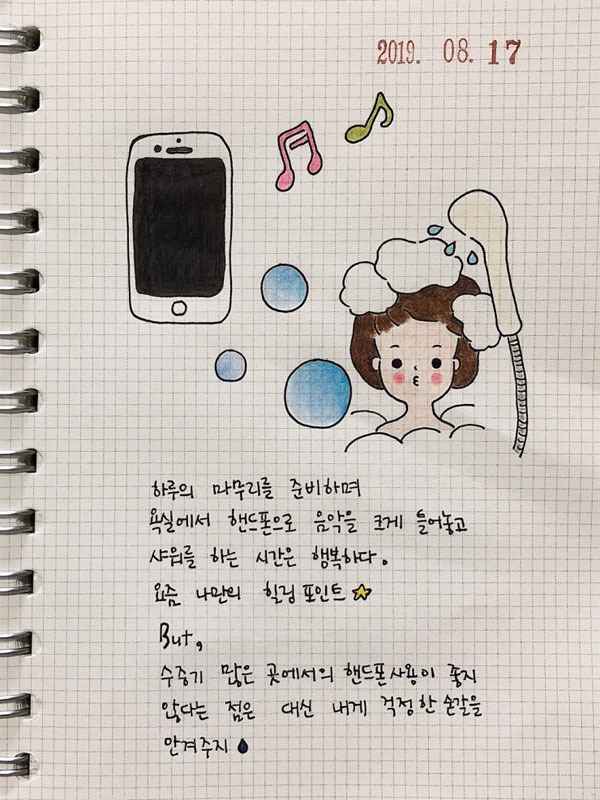 2019. 08. 17
하루의 마무리를 준비하며
욕실에서 핸드폰으로 음악을 크게 틀어놓고
샤워를 하는 시간은 행복하다.
요즘 나만의 힐링 포인트
But,
수증기 많은 곳에서의 핸드폰사용이 좋지
않다는 점은 대신 내게 걱정한손갈을
안겨주지